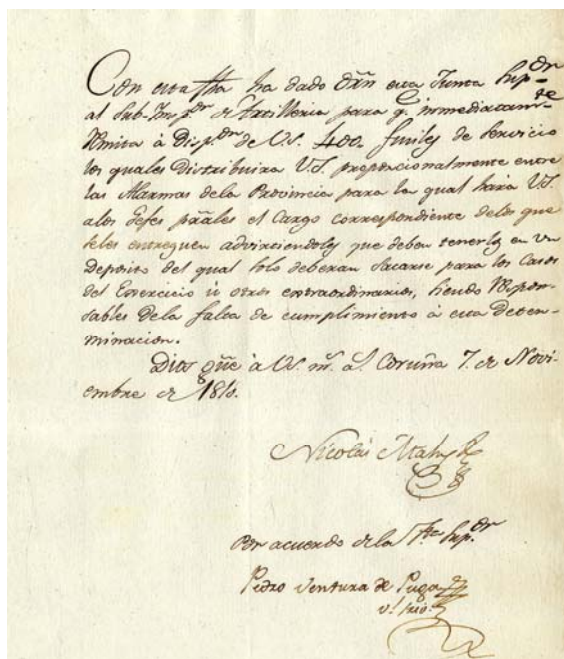 Con esta fha ha dado Orñ esta Junta Sup.or
al Sub-Insp.or de Artilleria para q.e inmediatam.te
Remita à Disp.on de V.S. 400. fusiles de Servicio
los quales Distribuira V.S. proporcionalmente entre
las Alarmas dela Provincia para lo qual hará V.S.
alos Gefes prãles el Cargo correspondiente delos que
seles entreguen advirtiendoles que deben tenerlos en un
Deposito del qual solo deberan sacarse para los Casos
del Exercicio ù otros extraordinarios, siendo Respon-
sables Dela falta de cumplimiento à esta Deter-
minacion.
Dios gũe à V.S. m.s a.s Coruña 7. de Novi-
embre de 1810.
Nicolás Mahy
Por acuerdo dela Sup.or
Pedro Ventura de Puga
v.l srio.